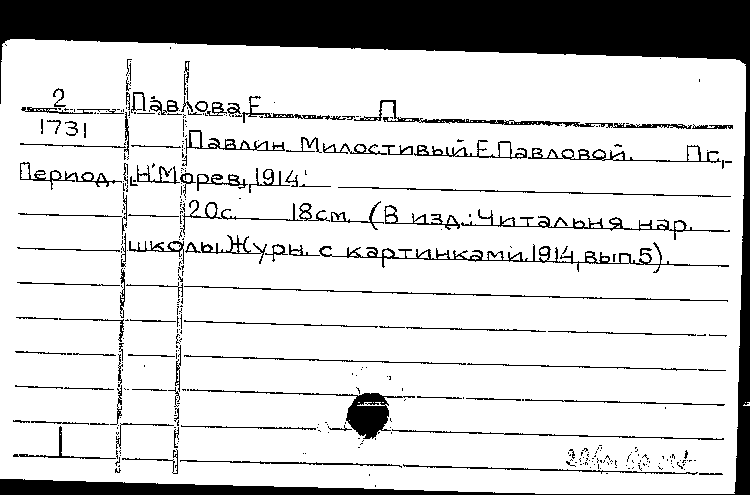 2 Павлова,Е П
1731 Павлин Милостивый.Е.Павловой. Пг.,
Период. "Н.Морев", 1914.
20с. 18см. (В изд.:Читальня нар.
школы.Журн. с картинками.1914,вып.5).